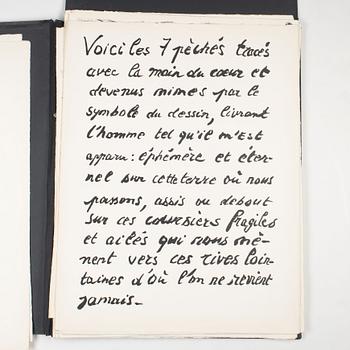 Voici les 7 pèchés tracés
avec la main du cœur et
devenus mimes par le
symbole du dessin, livrant
l'homme tel qu'il m'est
apparu : éphémère et éter-
nel sur cette terre où nous
passons, assis ou debout
sur ces coursiers fragiles
et ailés qui nous mè-
nent vers ces rives loin-
taines d'où l'on ne revient
jamais_